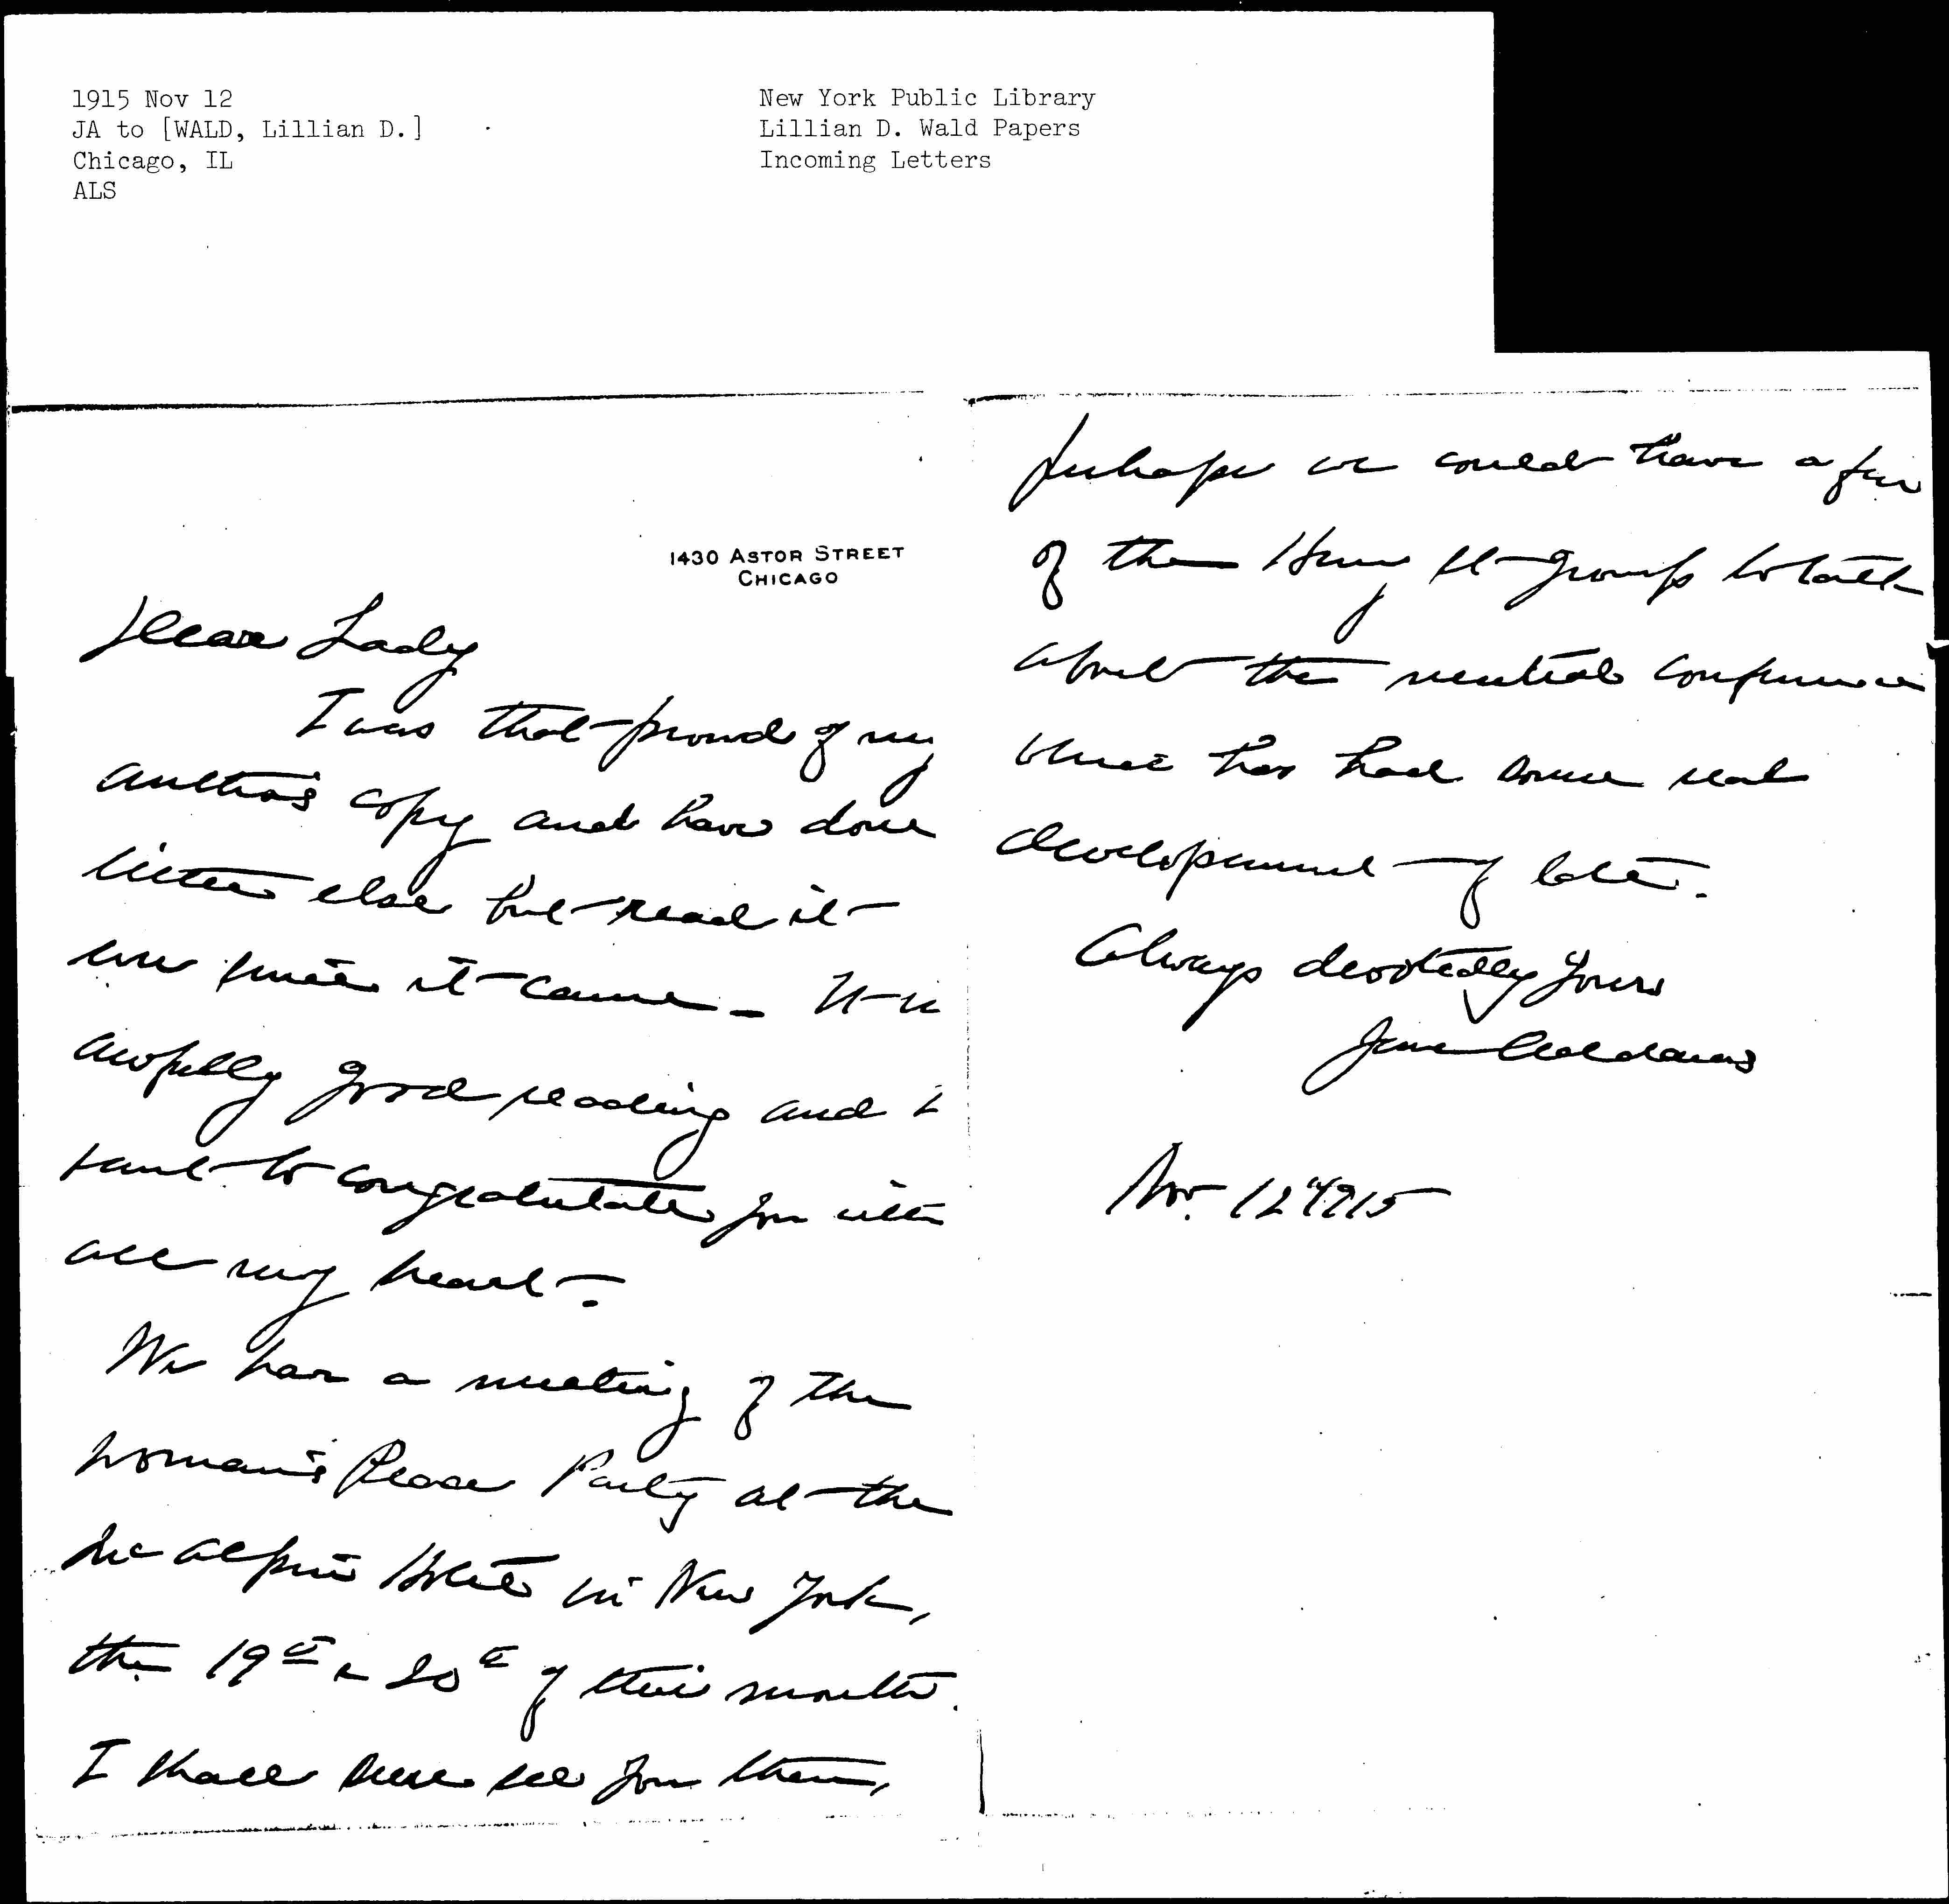 1915 Nov 12
JA to [WALD, Lillian D.]
Chicago, IL
ALS
New York Public Library
Lillian D. Wald Papers
Incoming Letters
1430 ASTOR STREET
CHICAGO
Dear Lady
I was that proud of my
author's copy and have done
little else but read it
ever since it came – It is
awfully good reading and I
want to congratulate you with
all my heart –
We have a meeting of the
Woman's Peace Party at the
McAlpin Hotel in New York,
the 19th & 20th of this month.
I shall see you then,
perhaps we could have a few
of the Henry St group to talk
about the neutral conference
which has had some real
development of late.
Always devotedly yours
Jane Addams
Nov. 12" 1915